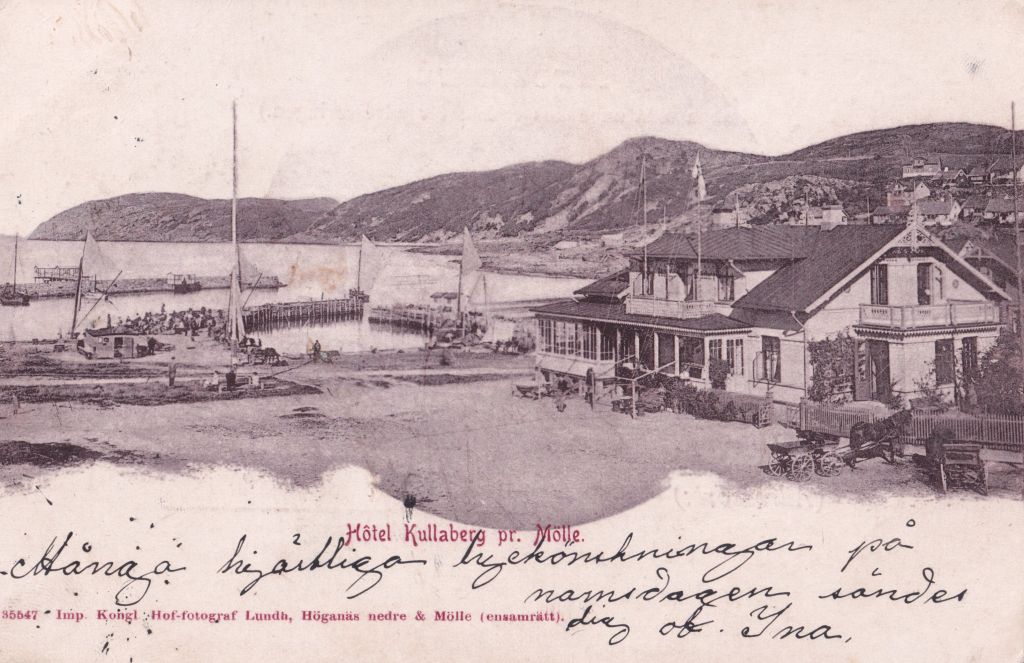 Hôtel Kullaberg pr. Mölle.
Många hjärtliga lyckönskningar på
namsdagen sändes
dig af Ina.
35547 Imp. Kongl. Hof-fotograf Lundh, Höganäs nedre & Mölle (ensamrätt).